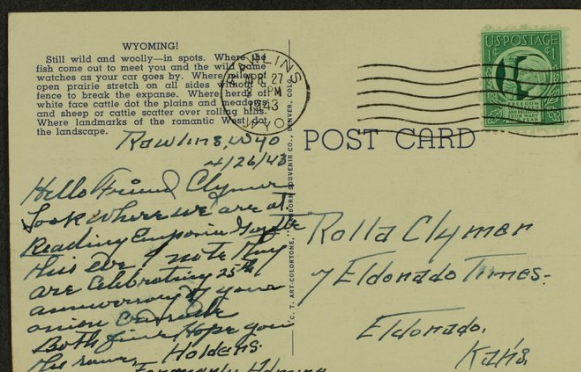 WYOMING!
Still wild and woolly—in spots. Where the
fish come out to meet you and the wild game
watches as your car goes by. Where miles of
open prairie stretch on all sides without a
fence to break the expanse. Where herds of
white face cattle dot the plains and meadows
and sheep or cattle scatter over rolling hills.
Where landmarks of the romantic West dot
the landscape.
RAWLINS
APR 27
PM
1943
WYO
U.S. POSTAGE
1¢
POST CARD
C. T. ART-COLORTONE, SANBORN SOUVENIR CO., DENVER, COLO.
Rawlins, Wyo
4/26/43
Hello Friend Clymer
Look where we are at.
Reading Emporia Gazette
this Eve. I note they
are Celebrating 25th
anniversary of your
onion
Both fine Hope you
the same, Holdens.
Formerly
Rolla Clymer
% Eldorado Times.
Eldorado.
Kans.